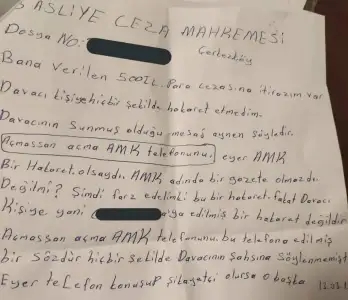 5 ASLİYE CEZA MAHKEMESİ
Dosya NO:
Çerkezköy
Bana Verilen 500TL. Para cezasına itirazım var
Davacı kişiye hiçbir şekilde hakaret etmedim.
Davacının Sunmuş olduğu mesaj aynen şöyledir.
Açmassan açma AMK telefonunu. eğer AMK
Bir Hakaret olsaydı. AMK adında bir gazete olmazdı.
Değilmi? Şimdi farz edelimki bu bir hakaret. fakat Davacı
Kişiye yani 'ya edilmiş bir hakaret değildir
Açmassan açma AMK telefonunu. bu telefona edilmiş
bir sözdür hiçbir şekilde Davacının Şahsına Söylenmemişt
Eğer telefon konuşup şikayetçi olursa o başka